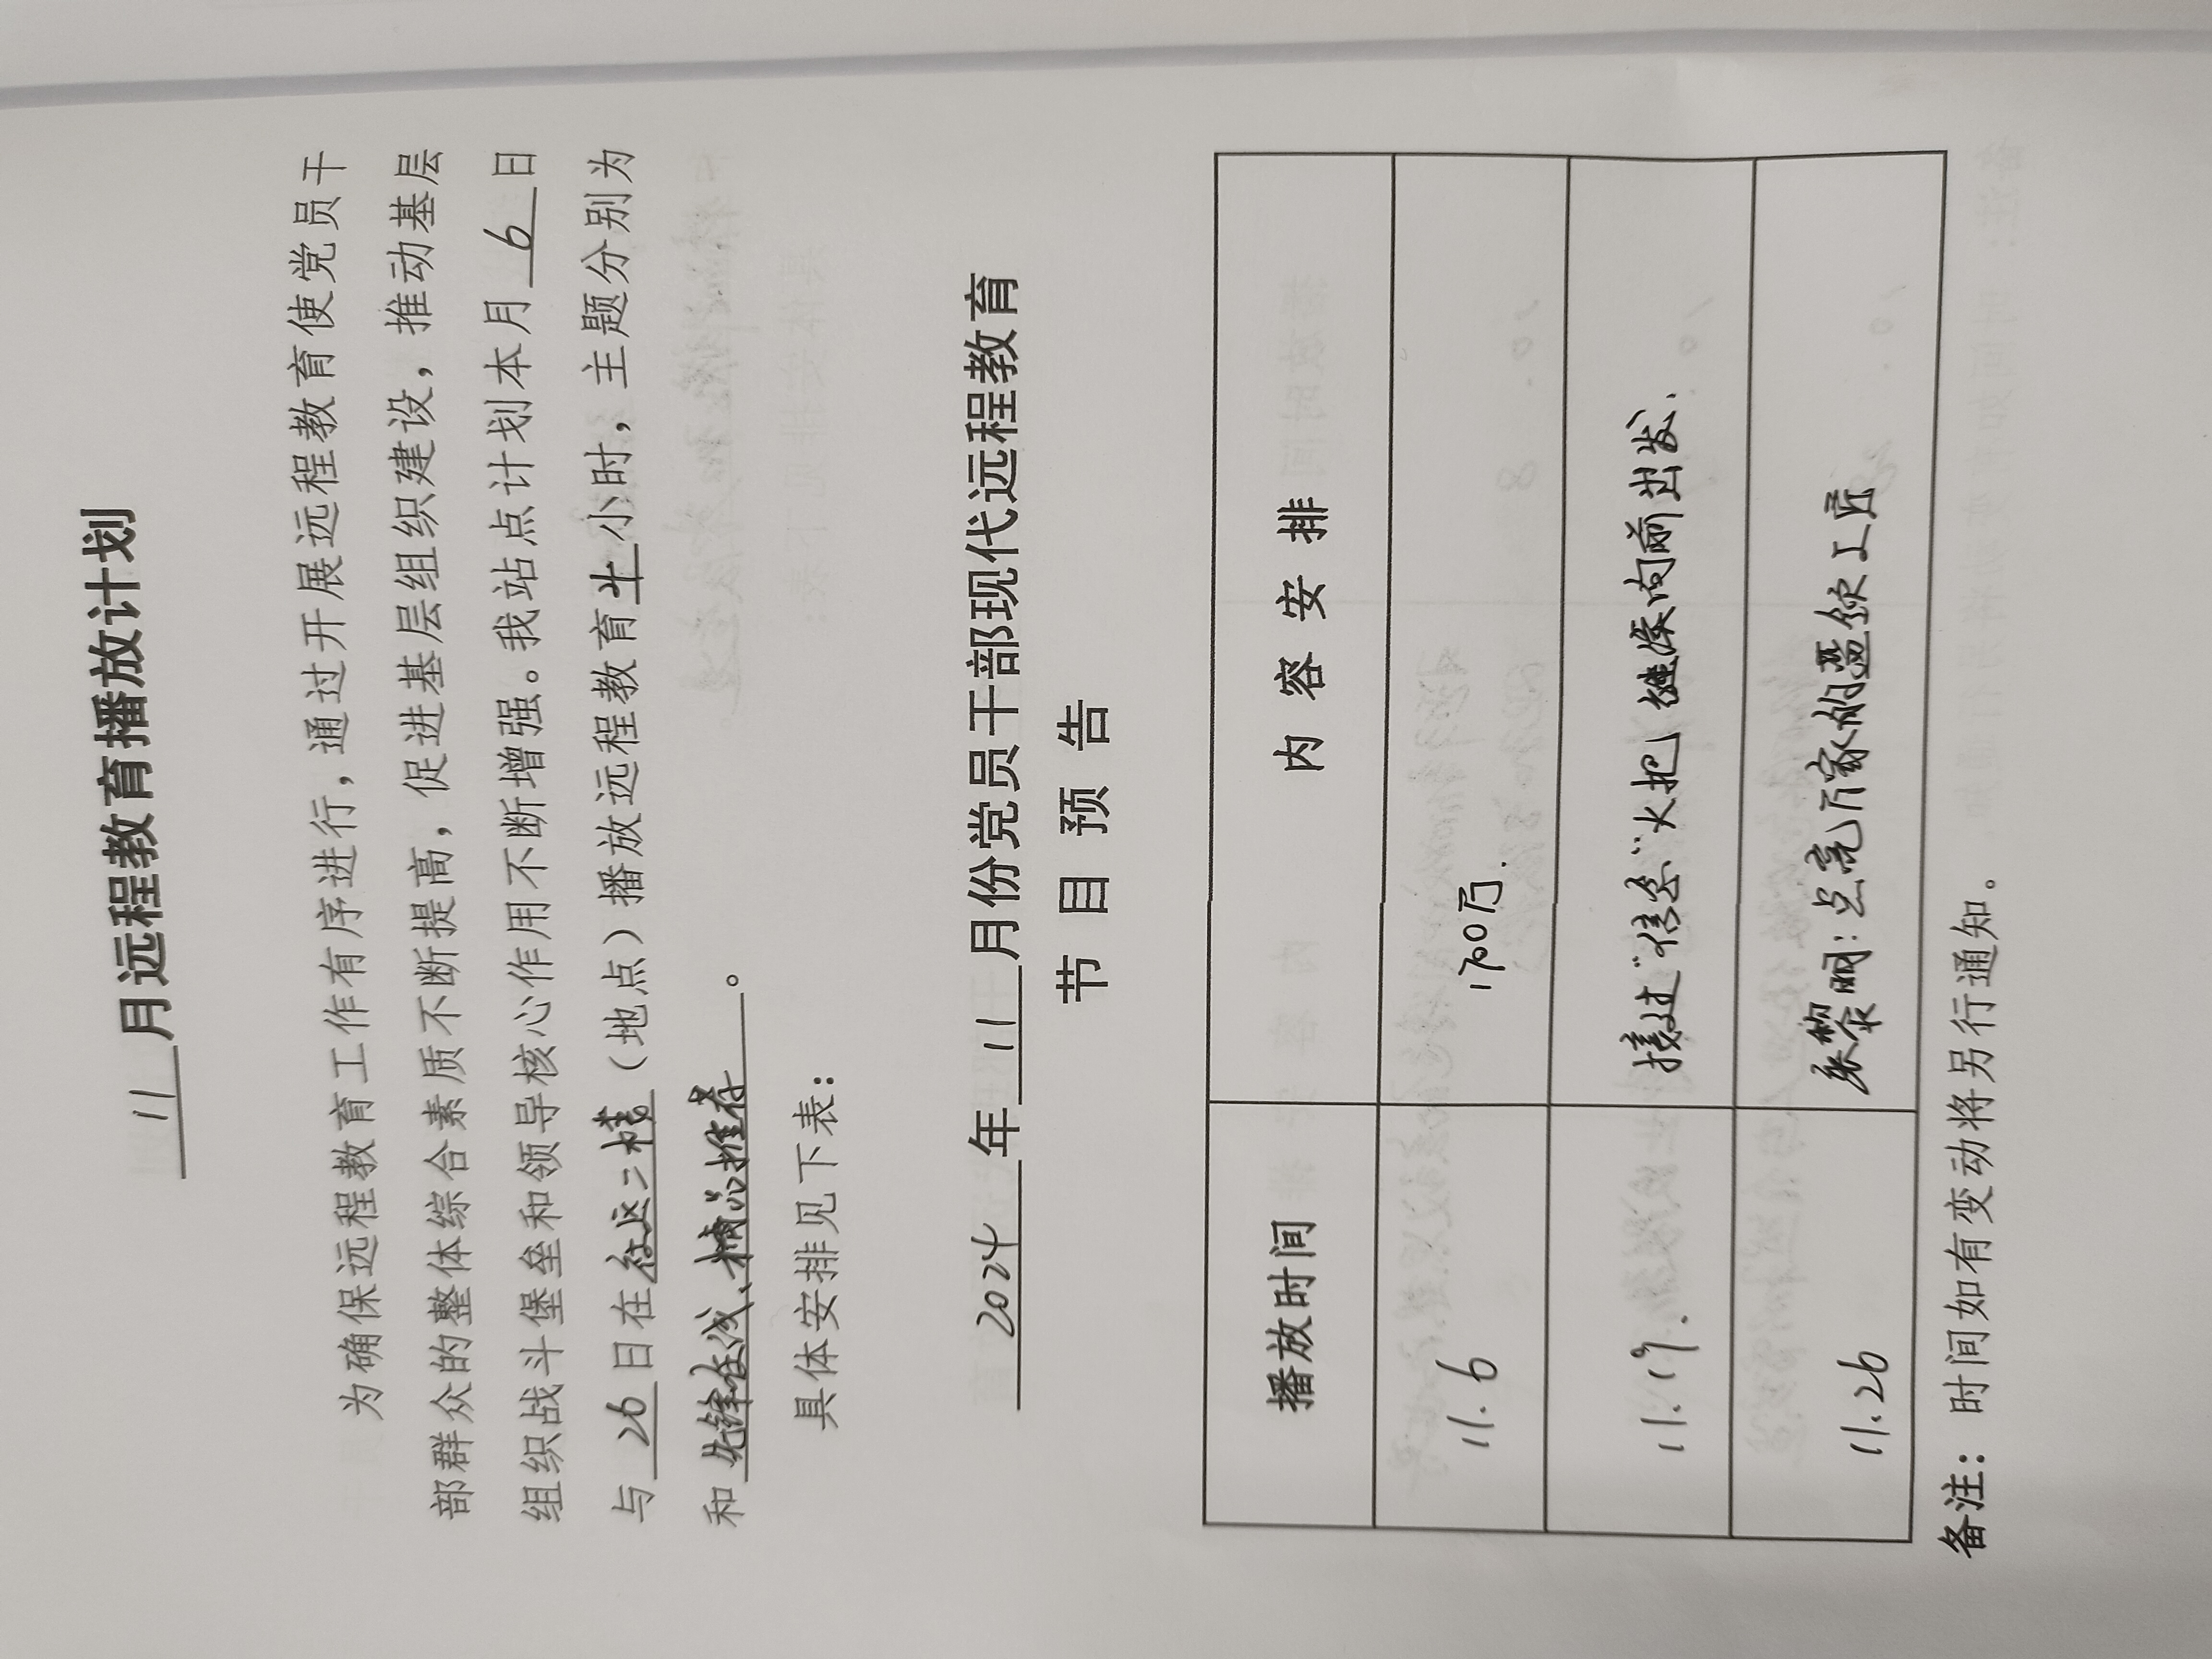 11月远程教育播放计划
为确保远程教育工作有序进行，通过开展远程教育使党员干
部群众的整体综合素质不断提高，促进基层组织建设，推动基层
组织战斗堡垒和领导核心作用不断增强。我站点计划本月6日
与26日在社区二楼（地点）播放远程教育4小时，主题分别为
和先锋在线、精品推荐。
具体安排见下表：
2024年11月份党员干部现代远程教育
节目预告
播放时间 内容安排
11.6 1700万.
11.19. 接过"信念"火把 继续向前出发.
11.26 张黎明：点亮万家的蓝领工匠
备注：时间如有变动将另行通知。